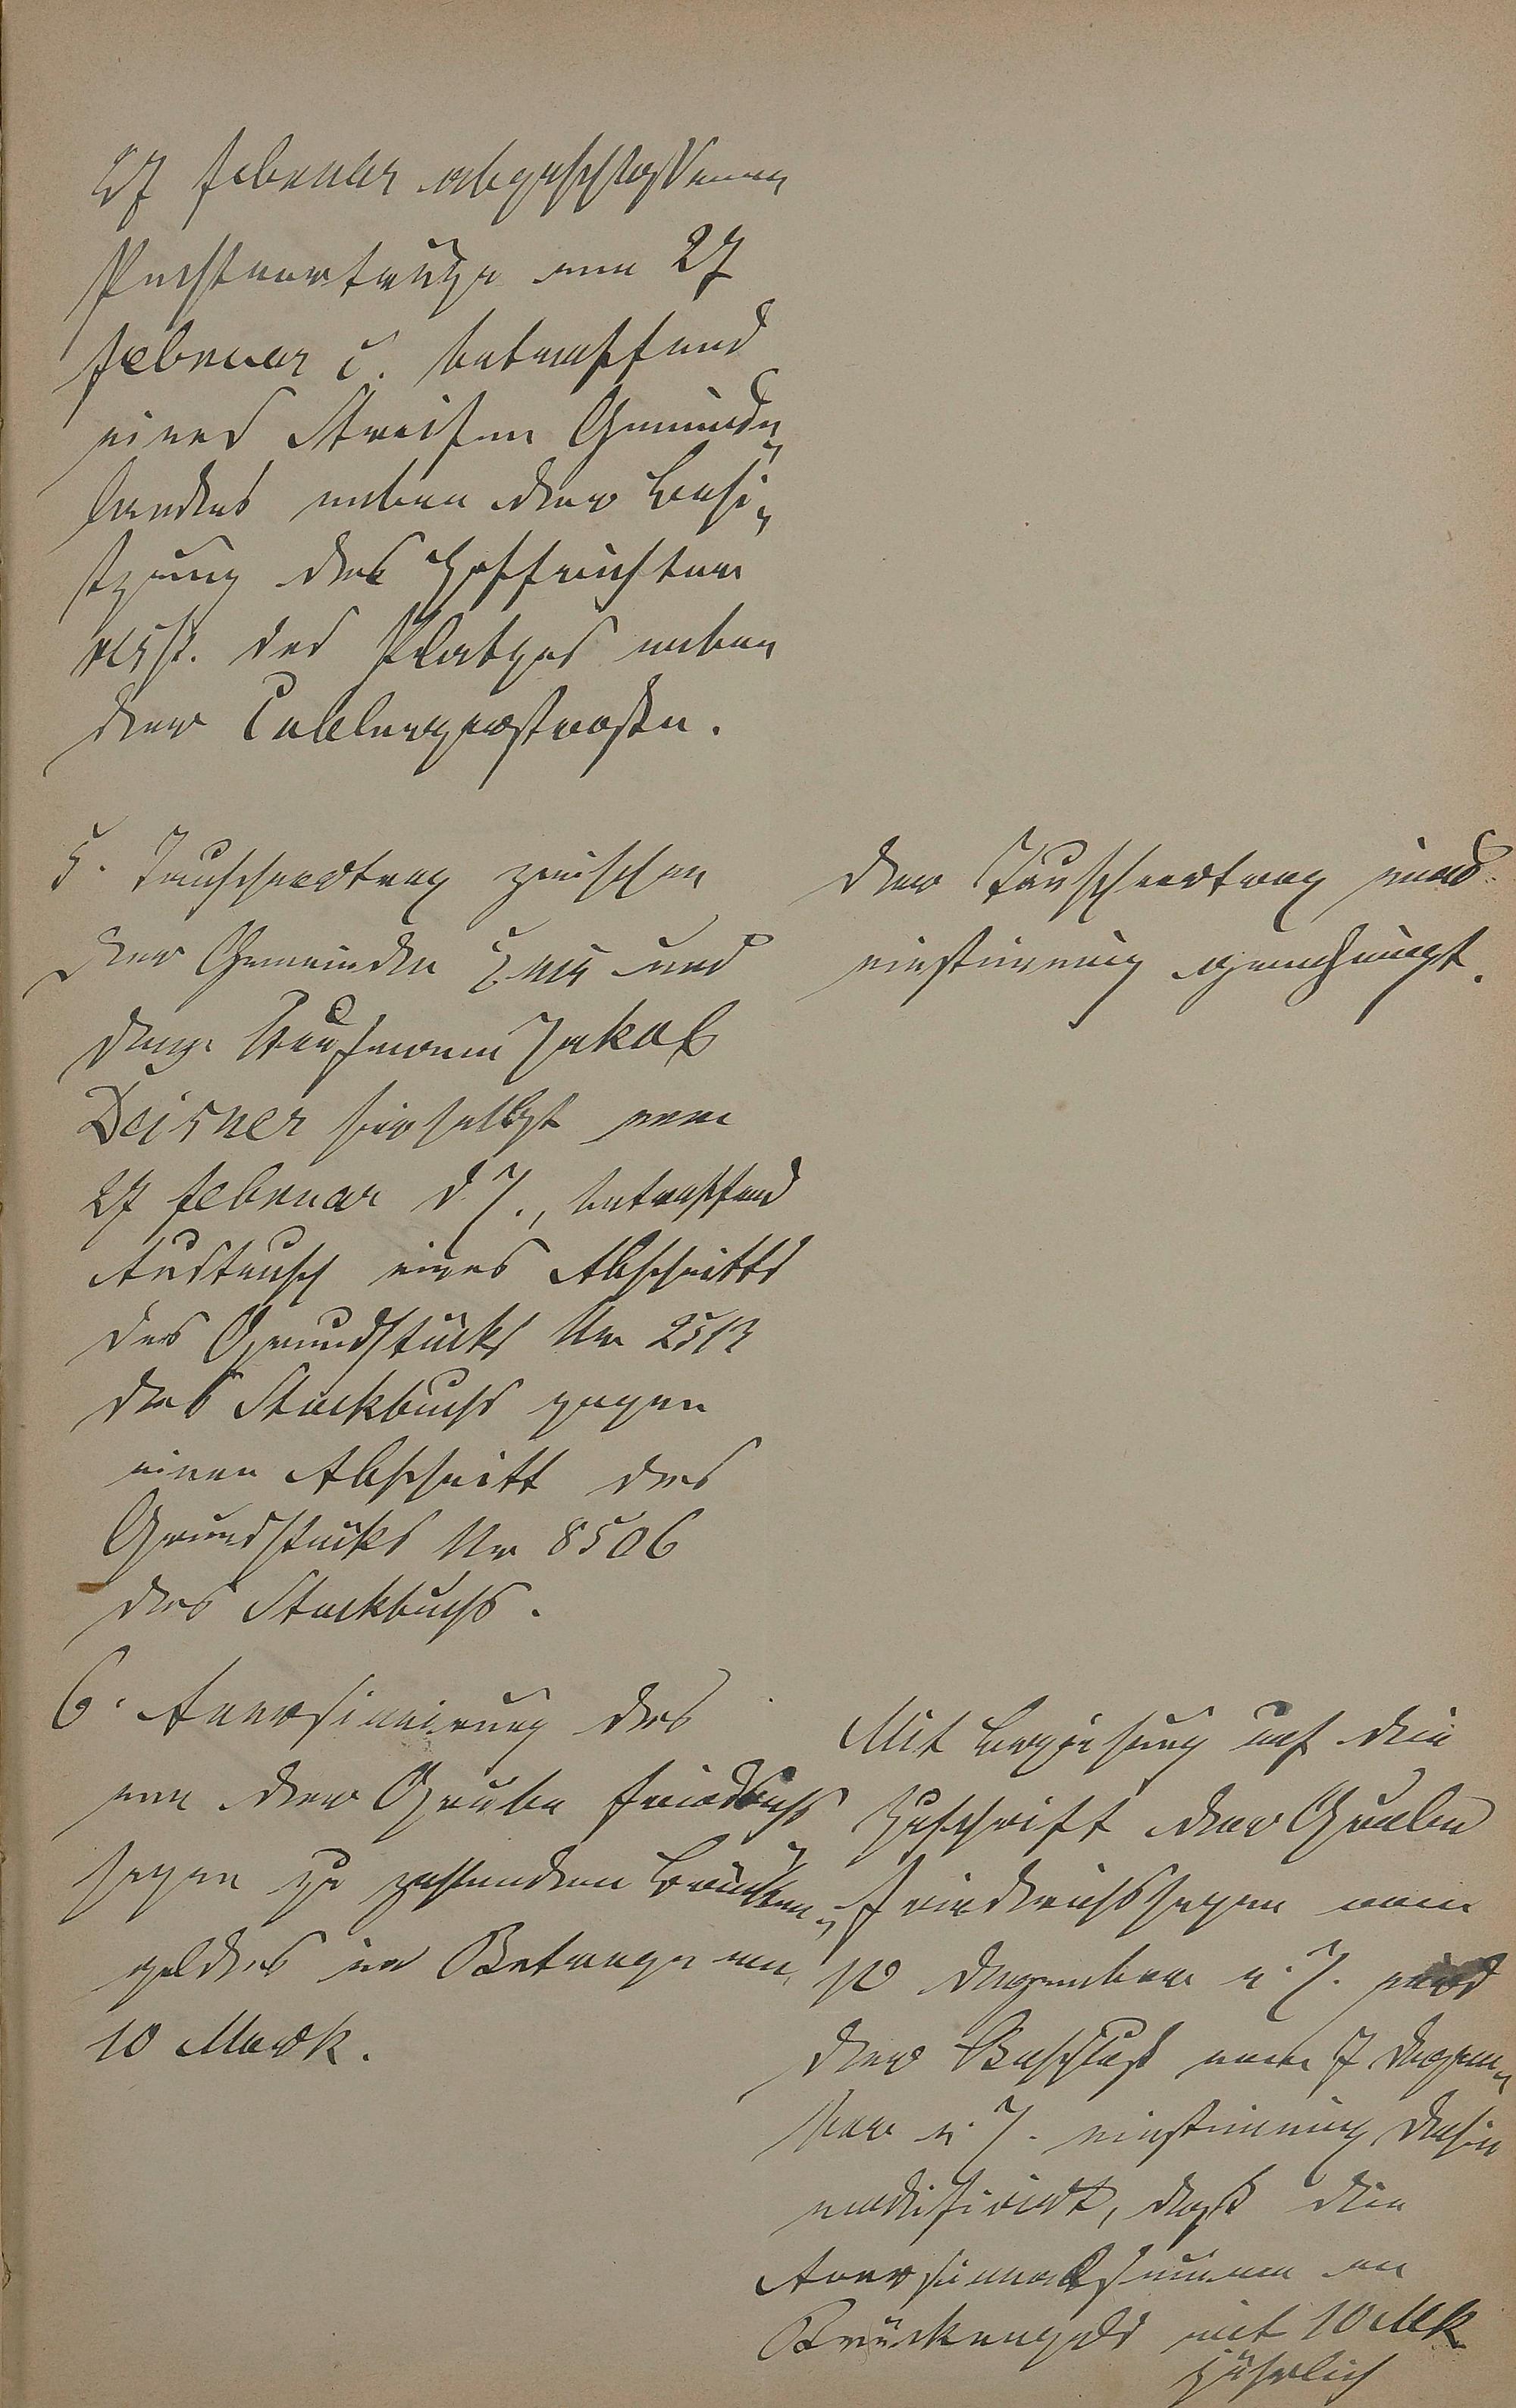 27 Februar abgeschlossenen
Pachtvertrage vom 27
Februar c. betreffend
eines Streifen Gemeinde-
landes neben der Besi-
tzung des Hoffrichter
resp. des Platzes neben
der Coblenzerstraße.
5. Tauschvertrag zwischen
der Gemeinde Ems und
dem Kaufmann Jakob
Deisner hierselbst vom
27 Februar d. J., betreffend
Austausch eines Abschnitts
des Grundstücks No 2513
des Stockbuchs gegen
einen Abschnitt des
Grundstücks No 8506
des Stockbuchs.
Der Tauschvertrag wird
einstimmig genehmigt.
6. Aversionirung des
von der Grube Friedrichs
segen zu zahlenden Brücken-
geldes im Betrage von
10 Mark.
Mit Beziehung auf die
Zuschrift der Grube
Friedrichssegen vom
10 Dezember v. J. wird
der Beschluß vom 7 Dezem-
ber v. J. einstimmig dahin
modifizirt, daß die
Aversionalsumme an
Brückengeld mit 10 Mk
jährlich